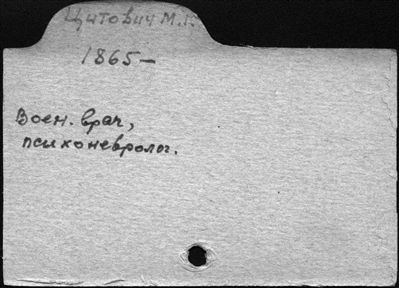 Цитович М.Г.
1865-
Воен. врач,
психоневролог.